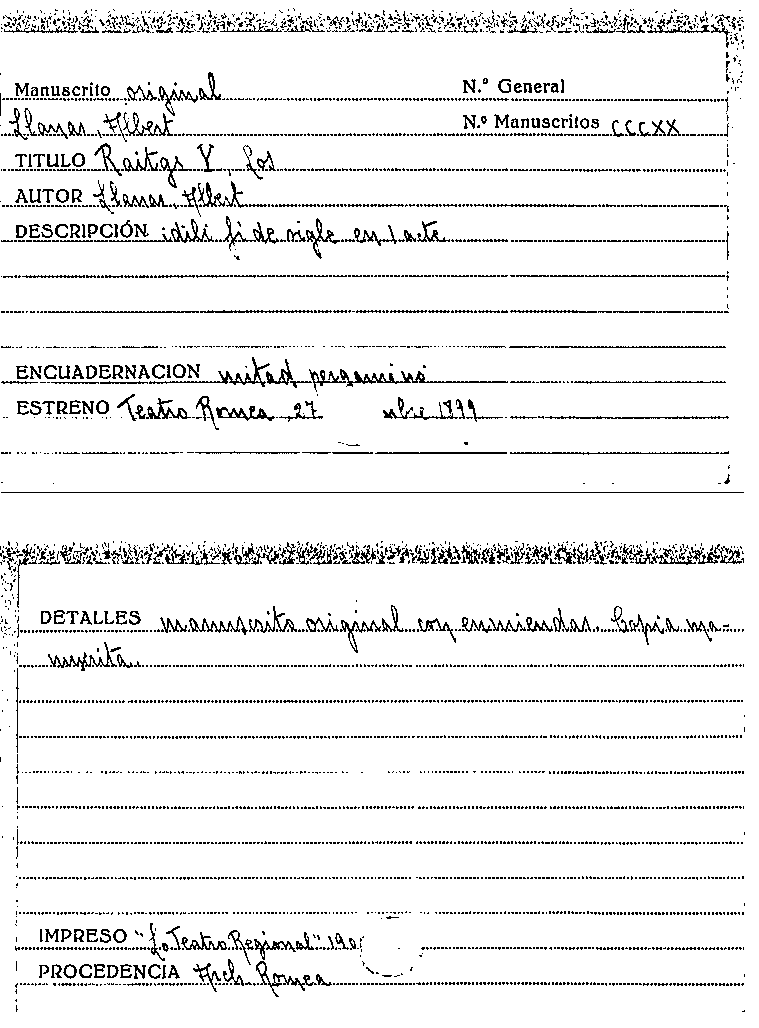 Manuscrito original N.º General
Llanas, Albert N.º Manuscritos CCCXX
TITULO Raitgs X, Los
AUTOR Llanas, Albert
DESCRIPCIÓN idili fi de sigle en 1 acte
ENCUADERNACION mitad pergamino
ESTRENO Teatro Romea 27 mbre 1899
DETALLES manuscrito original con enmiendas. Copia ma-
nuscrita.
IMPRESO "Lo Teatro Regional" 190
PROCEDENCIA Arch. Romea